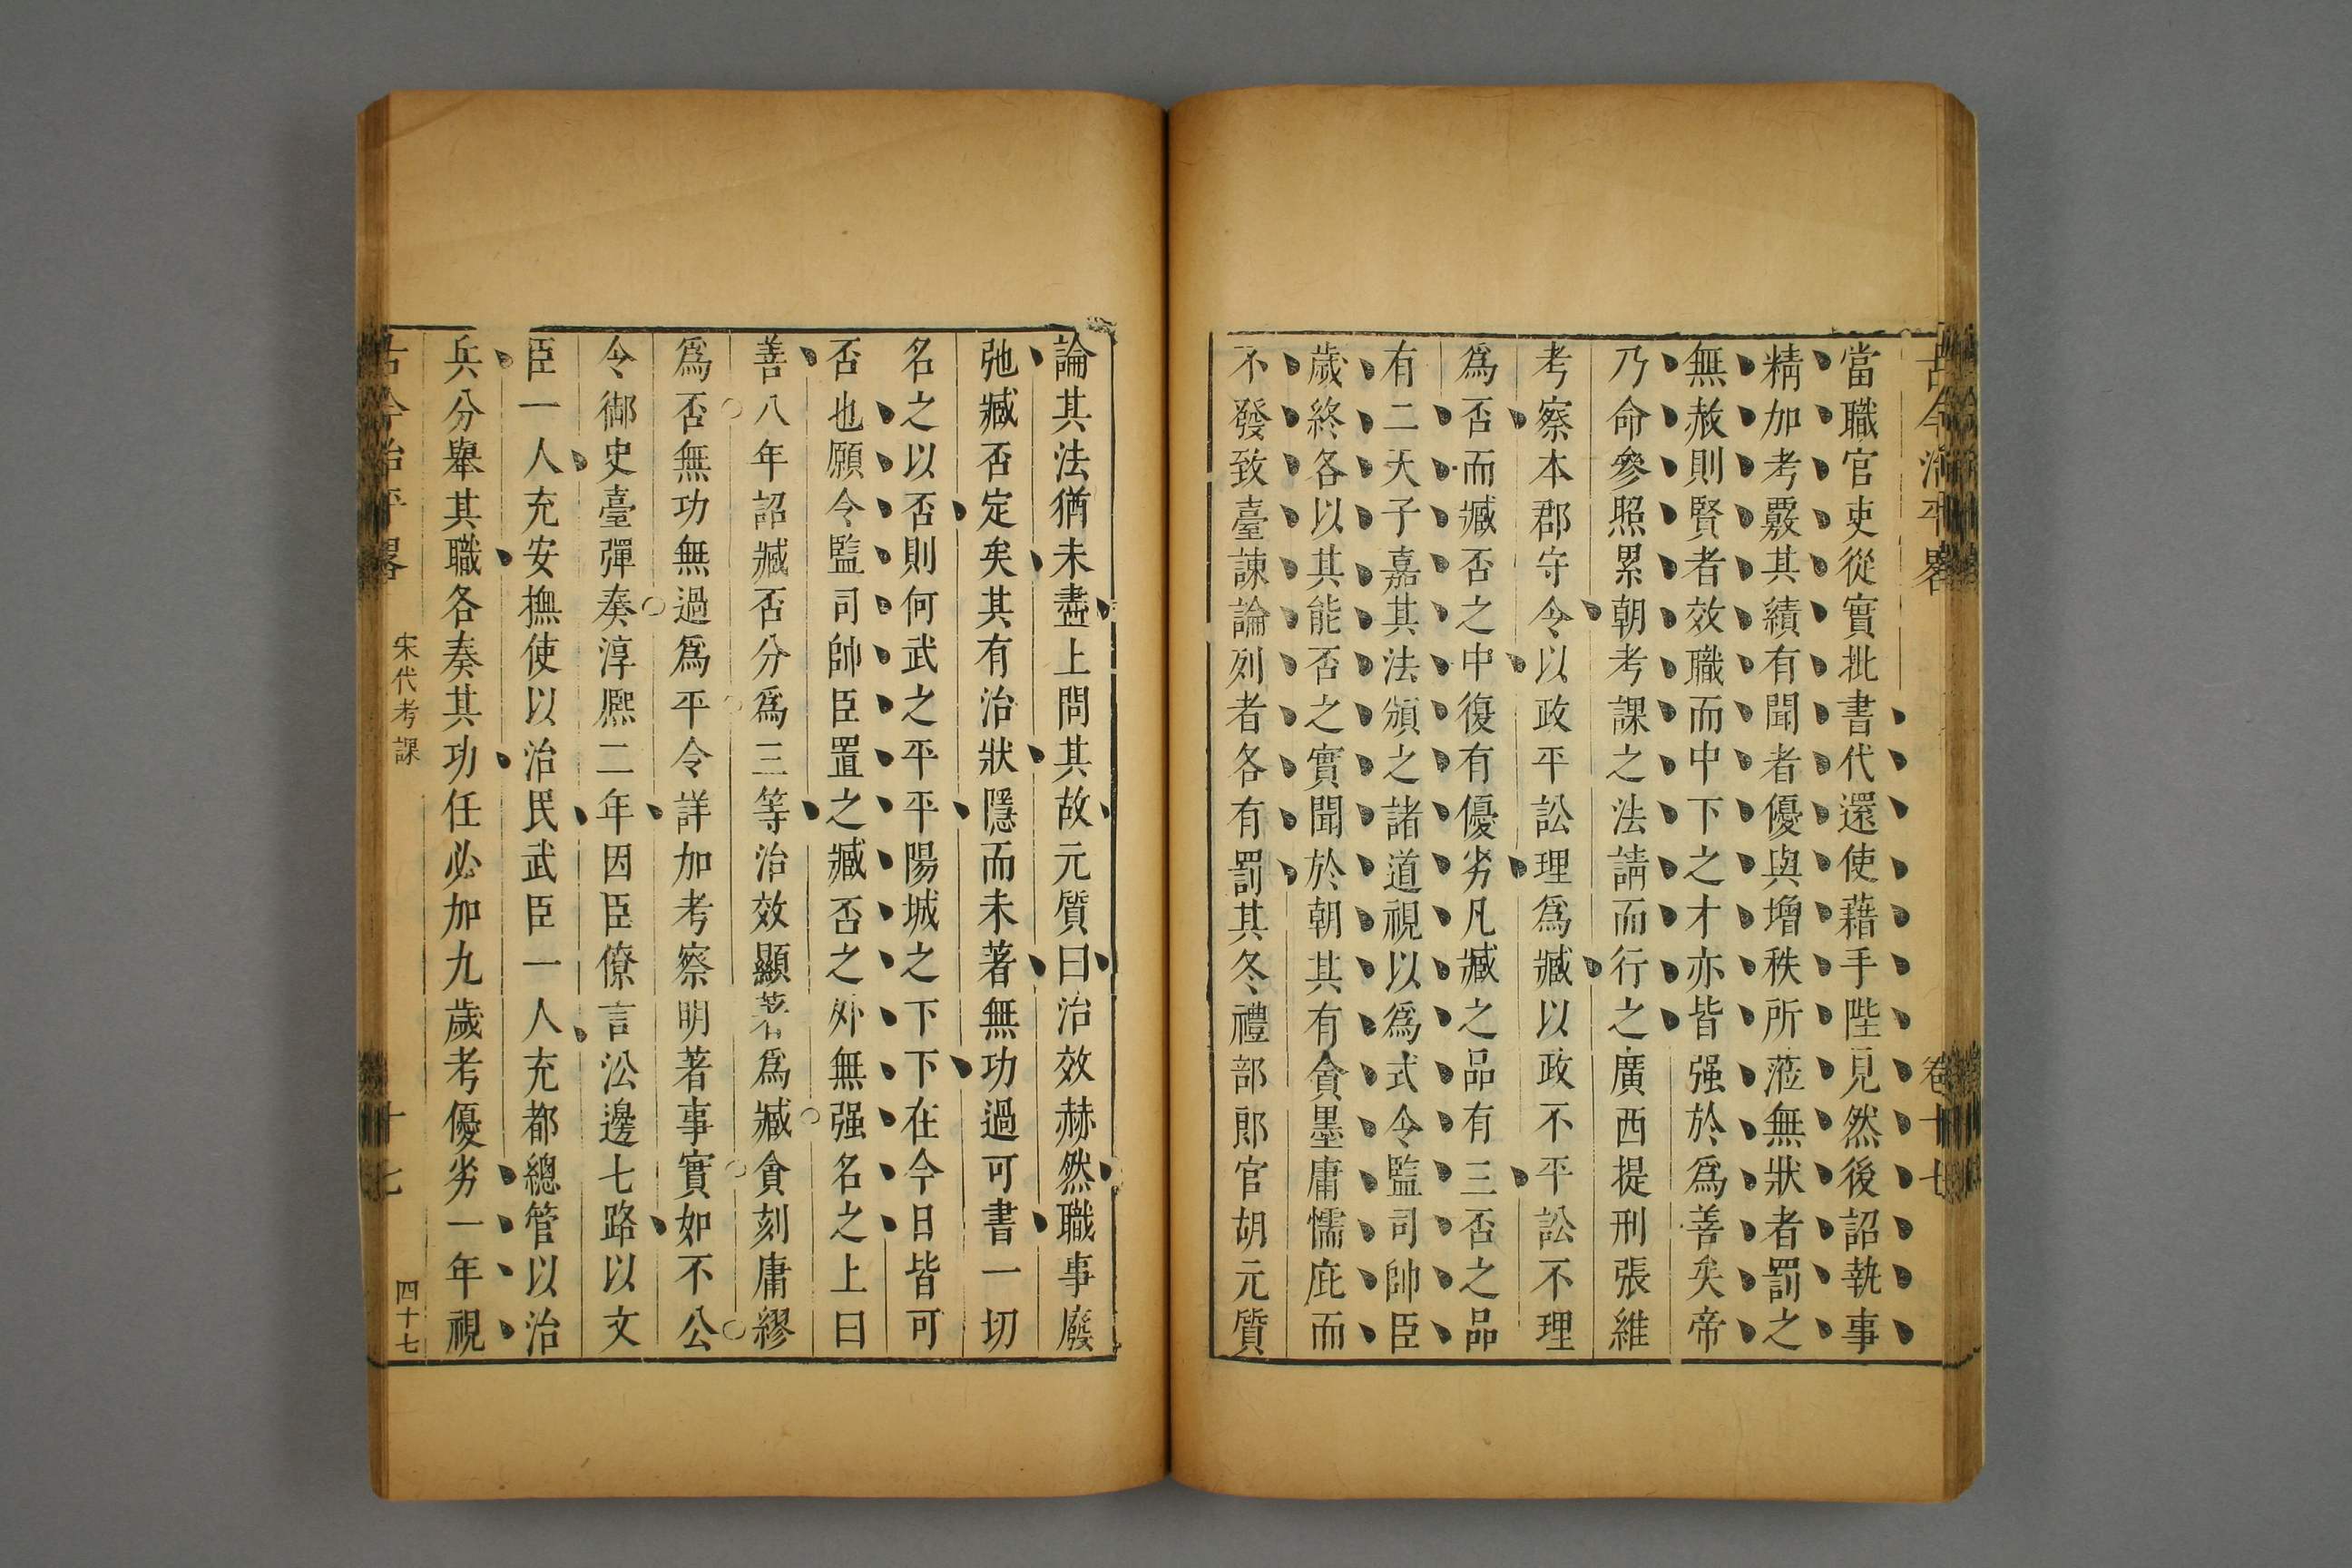 古今治平畧
卷十七
當職官吏從實批書代還使藉手陛見然後詔執事
精加考覈其績有聞者優與增秩所蒞無狀者罰之
無赦則賢者效職而中下之才亦皆强於爲善矣帝
乃命參照累朝考課之法請而行之廣西提刑張維
考察本郡守令以政平訟理爲臧以政不平訟不理
爲否而臧否之中復有優劣凡臧之品有三否之品
有二天子嘉其法頒之諸道視以爲式令監司帥臣
歲終各以其能否之實聞於朝其有貪墨庸懦庇而
不發致臺諫論列者各有罰其冬禮部郎官胡元質
論其法猶未盡上問其故元質曰治效赫然職事廢
弛臧否定矣其有治狀隱而未著無功過可書一切
名之以否則何武之平平陽城之下下在今日皆可
否也願令監司帥臣置之臧否之外無强名之上曰
善八年詔臧否分爲三等治效顯著爲臧貪刻庸繆
爲否無功無過爲平令詳加考察明著事實如不公
令御史臺彈奏淳熈二年因臣僚言㳂邊七路以文
臣一人充安撫使以治民武臣一人充都總管以治
兵分舉其職各奏其功任必加九歲考優劣一年視
古今治平畧
宋代考課
十七
四十七